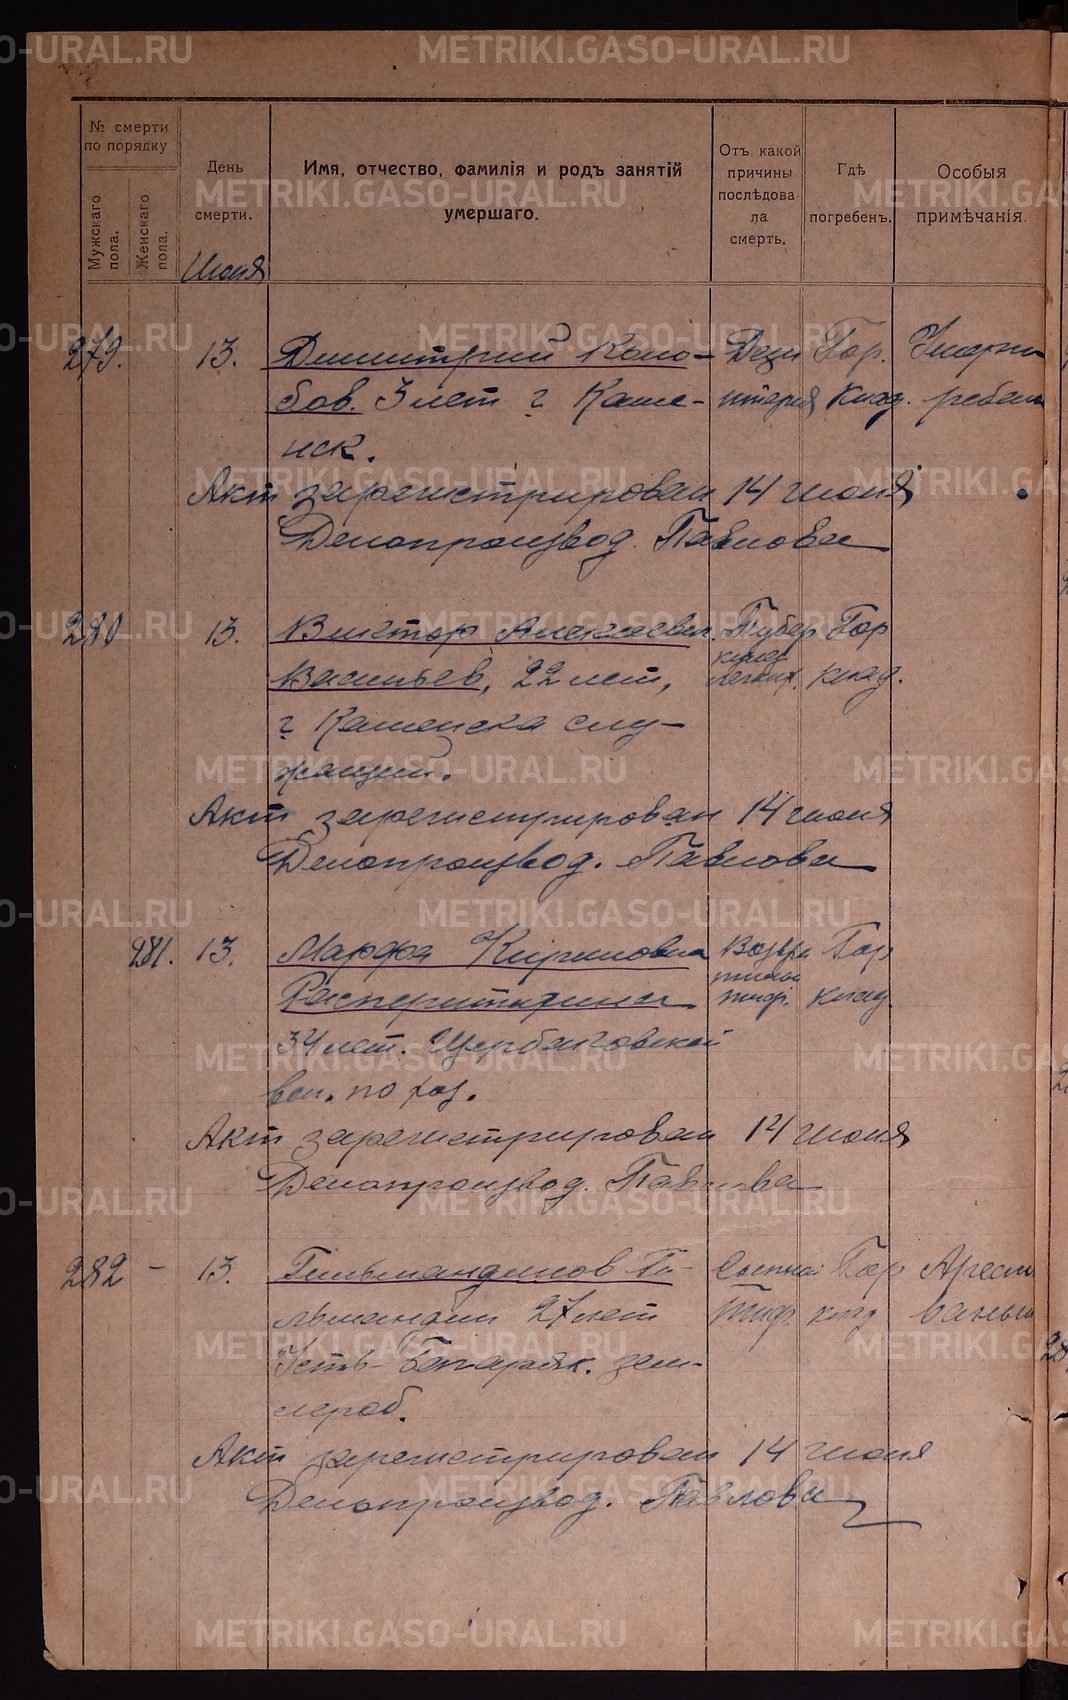 METRIKI.GASO-URAL.RU
№ смерти по порядку
Мужскаго пола.
Женскаго пола.
День смерти.
Июня
Имя, отчество, фамилія и родъ занятій умершаго.
Отъ какой причины послѣдовала смерть.
Гдѣ погребенъ.
Особыя примѣчанія.
279. 13. Димитрий Коло- Дези Гор.
бов. 3 лет г. Каме- нтерия Клад. ребен
нск.
Акт зарегистрирован 14 июня
Делопроизвод. Павлова
280 13. Виктор Алексеевич Тубер Гор
Васильев, 22 лет, легких. клад.
г Каменска слу-
жащий.
Акт зарегистрирован 14 июня
Делопроизвод. Павлова
281. 13. Марфа Кириловна Возвра Гор
тиф. клад.
34 лет.
вол. по хоз.
Акт зарегистрирован 14 июня
Делопроизвод. Павлова
282 - 13. Гильмандинов Ги- Сыпной Гор Арест
льмандин 27 лет тиф. клад ваный
Усть-Багаряк. зем-
лероб.
Акт зарегистрирован 14 июня
Делопроизвод. Павлова